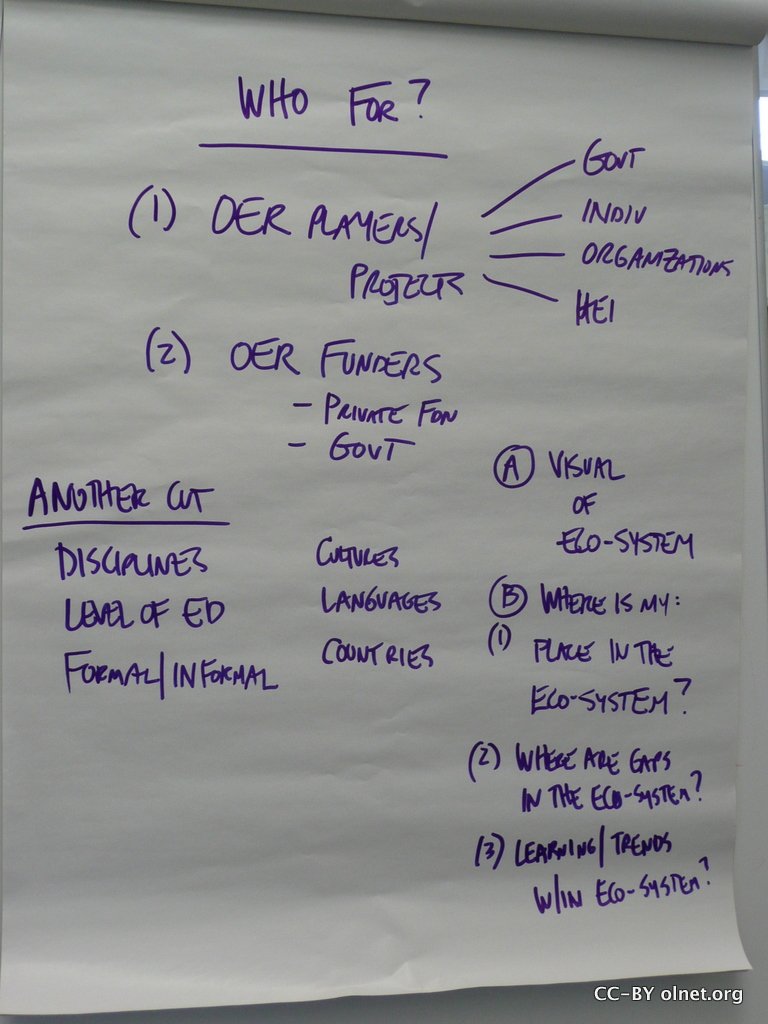 WHO FOR?
(1) OER PLAYERS/
PROJECTS
GOVT
INDIV
ORGANIZATIONS
HEI
(2) OER FUNDERS
- PRIVATE FDN
- GOVT
ANOTHER CUT
DISCIPLINES
LEVEL OF ED
FORMAL/INFORMAL
CULTURES
LANGUAGES
COUNTRIES
A VISUAL
OF
ECO-SYSTEM
B WHERE IS MY:
(1) PLACE IN THE
ECO-SYSTEM?
(2) WHERE ARE GAPS
IN THE ECO-SYSTEM?
(3) LEARNING/TRENDS
W/IN ECO-SYSTEM?
CC-BY olnet.org